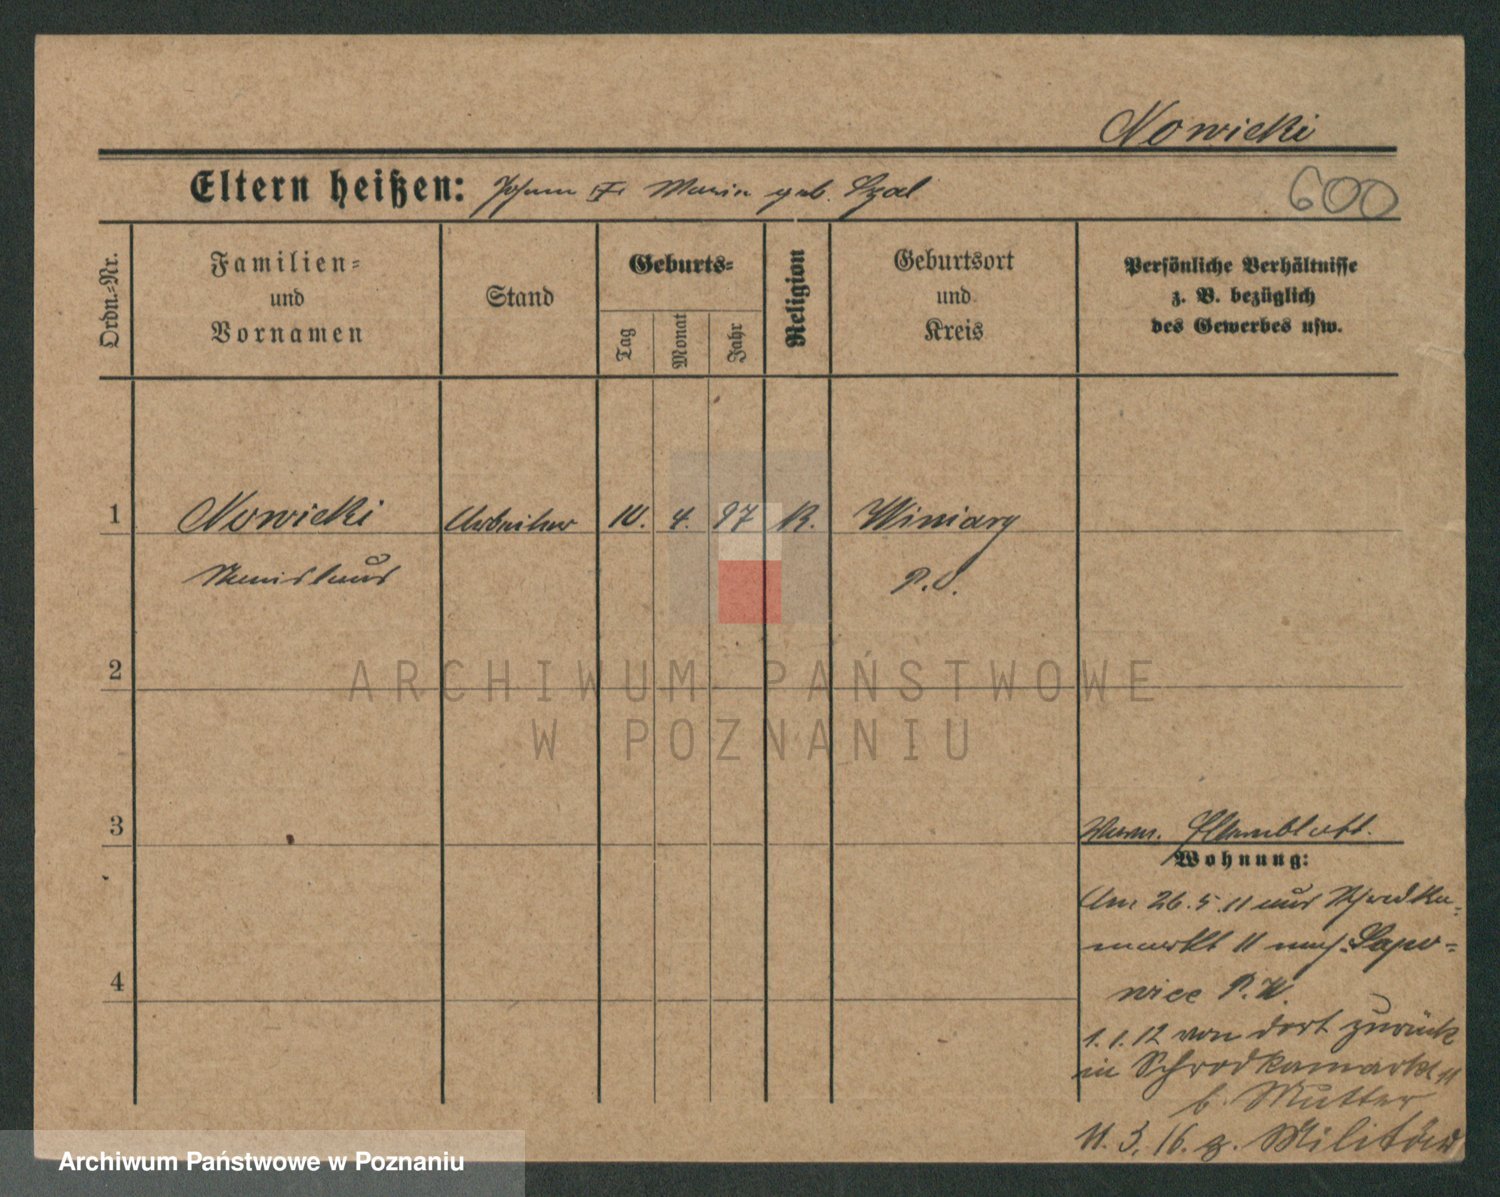 Nowicki
Eltern heißen: Johann Maria geb. Szal
600
Ordn.-Nr.
Familien-
und
Vornamen
Stand
Geburts-
Tag
Monat
Jahr
Religion
Geburtsort
und
Kreis
Persönliche Verhältnisse
z. B. bezüglich
des Gewerbes usw.
1 Nowicki Arbeiter 10. 4. 97 K. Winiary
Stanislaus P.O.
2
3
4
Stammblatt.
Wohnung:
Am 26.5.11 aus Schrodka-
markt 11 nach Sapo-
wice P.W.
1.1.12 von dort zurück
in Schrodkamarkt 11
b. Mutter
11.3.16. z. Militär
ARCHIWUM PAŃSTWOWE
W POZNANIU
Archiwum Państwowe w Poznaniu